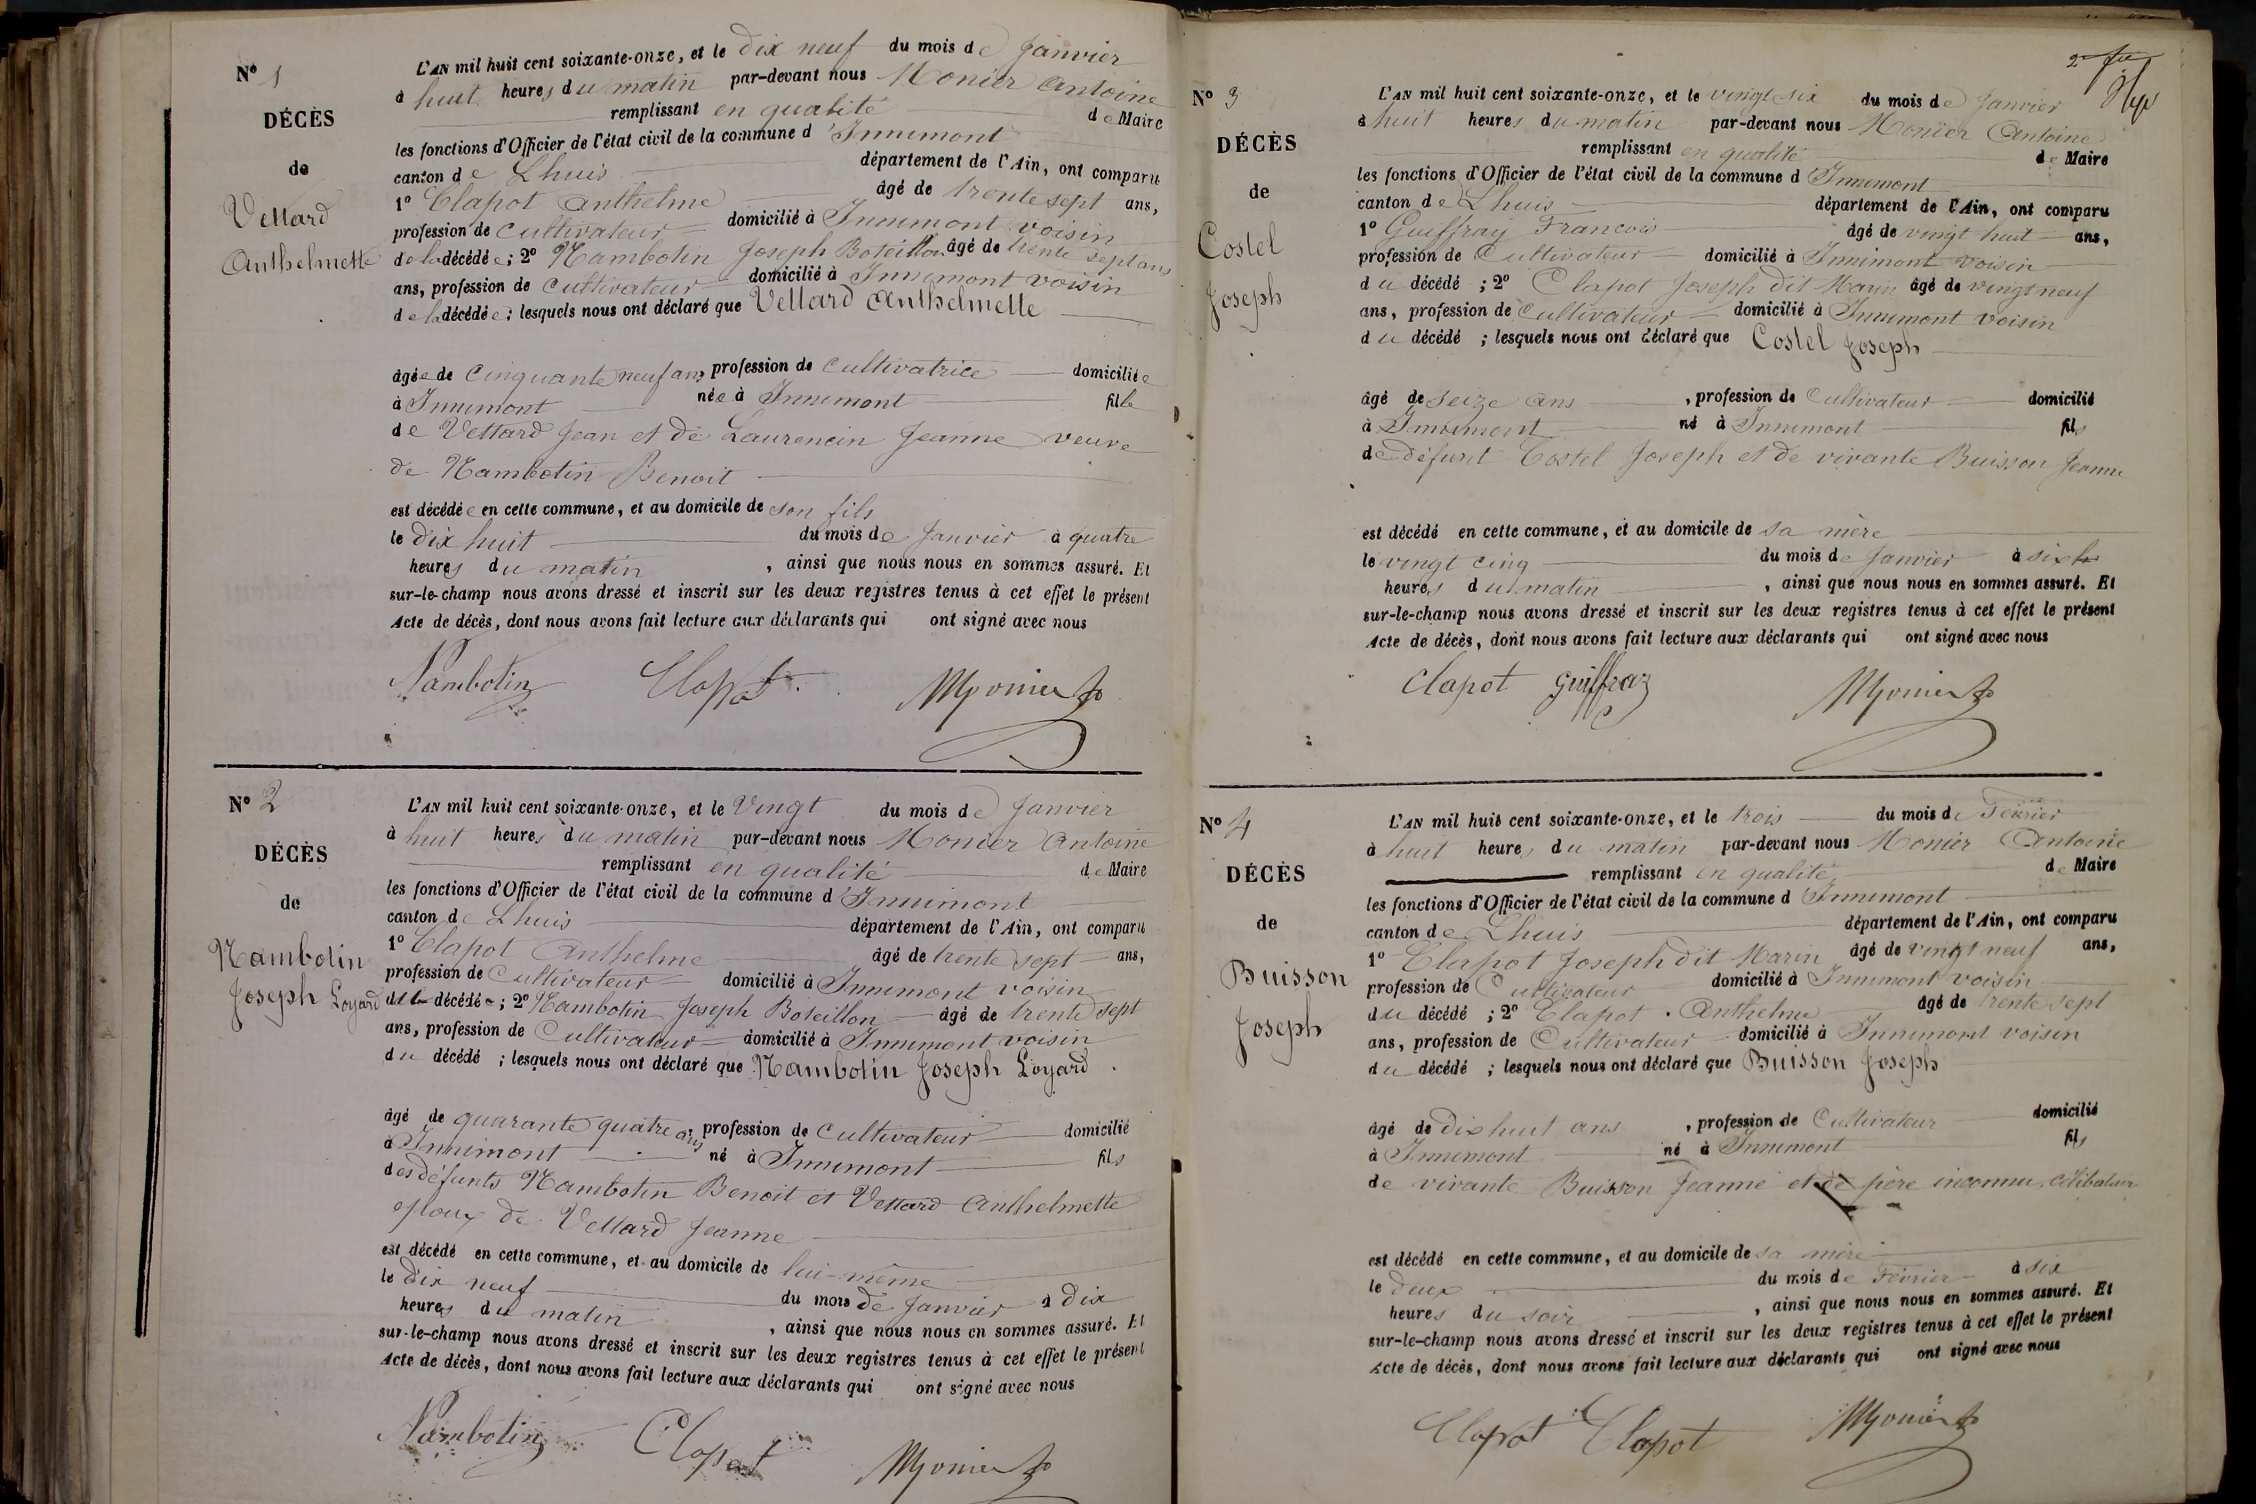 N° 1
DÉCÈS
de
Vettard
Anthelmette
L'AN mil huit cent soixante-onze, et le dix neuf du mois de Janvier
à huit heures du matin par-devant nous Monier Antoine
remplissant en qualité de Maire
les fonctions d'Officier de l'état civil de la commune d'Innimont
canton de Lhuis département de l'Ain, ont comparu
1° Clapot Anthelme âgé de trente sept ans,
profession de cultivateur domicilié à Innimont voisin
de la décédée ; 2° Nambotin Joseph Boteillon âgé de trente sept ans
ans, profession de cultivateur domicilié à Innimont voisin
de la décédée ; lesquels nous ont déclaré que Vettard Anthelmette
âgée de cinquante neuf ans profession de cultivatrice domiciliée
à Innimont née à Innimont fille
de Vettard Jean et de Laurencin Jeanne veuve
de Nambotin Benoit
est décédée en cette commune, et au domicile de son fils
le dix huit du mois de Janvier à quatre
heures du matin, ainsi que nous nous en sommes assuré. Et
sur-le-champ nous avons dressé et inscrit sur les deux registres tenus à cet effet le présent
Acte de décès, dont nous avons fait lecture aux déclarants qui ont signé avec nous
Nambotin Clapot Monier
N° 2
DÉCÈS
de
Nambotin
Joseph Loyard
L'AN mil huit cent soixante-onze, et le Vingt du mois de Janvier
à huit heures du matin par-devant nous Monier Antoine
remplissant en qualité de Maire
les fonctions d'Officier de l'état civil de la commune d'Innimont
canton de Lhuis département de l'Ain, ont comparu
1° Clapot Anthelme âgé de trente sept ans,
profession de Cultivateur domicilié à Innimont voisin
décédé ; 2° Nambotin Joseph Boteillon âgé de trente sept
ans, profession de Cultivateur domicilié à Innimont voisin
du décédé ; lesquels nous ont déclaré que Nambotin Joseph Loyard.
âgé de quarante quatre ans, profession de cultivateur domicilié
à Innimont né à Innimont fils
des défunts Nambotin Benoit et Vettard Anthelmette
époux de Vettard Jeanne
est décédé en cette commune, et au domicile de lui-même
le dix neuf du mois de Janvier à dix
heures du matin, ainsi que nous nous en sommes assuré. Et
sur-le-champ nous avons dressé et inscrit sur les deux registres tenus à cet effet le présent
Acte de décès, dont nous avons fait lecture aux déclarants qui ont signé avec nous
Nambotin Clapot Monier
N° 3
DÉCÈS
de
Costel
Joseph
L'AN mil huit cent soixante-onze, et le vingt six du mois de Janvier
à huit heures du matin par-devant nous Monier Antoine
remplissant en qualité de Maire
les fonctions d'Officier de l'état civil de la commune d'Innimont
canton de Lhuis département de l'Ain, ont comparu
1° Guiffray Francois âgé de vingt huit ans,
profession de Cultivateur domicilié à Innimont voisin
du décédé ; 2° Clapot Joseph dit Marin âgé de vingt neuf
ans, profession de Cultivateur domicilié à Innimont voisin
du décédé ; lesquels nous ont déclaré que Costel Joseph
âgé de seize ans, profession de Cultivateur domicilié
à Innimont né à Innimont fils
de défunt Costel Joseph et de vivante Buisson Jeanne
est décédé en cette commune, et au domicile de sa mère
le vingt cinq du mois de Janvier à six
heures du matin, ainsi que nous nous en sommes assuré. Et
sur-le-champ nous avons dressé et inscrit sur les deux registres tenus à cet effet le présent
Acte de décès, dont nous avons fait lecture aux déclarants qui ont signé avec nous
Clapot Guiffray Monier
N° 4
DÉCÈS
de
Buisson
Joseph
L'AN mil huit cent soixante-onze, et le trois du mois de Février
à huit heures du matin par-devant nous Monier Antoine
remplissant en qualité de Maire
les fonctions d'Officier de l'état civil de la commune d'Innimont
canton de Lhuis département de l'Ain, ont comparu
1° Clapot Joseph dit Marin âgé de vingt neuf ans,
profession de Cultivateur domicilié à Innimont voisin
du décédé ; 2° Clapot Anthelme âgé de trente sept
ans, profession de Cultivateur domicilié à Innimont voisin
du décédé ; lesquels nous ont déclaré que Buisson Joseph
âgé de dix huit ans, profession de Cultivateur domicilié
à Innimont né à Innimont fils
de vivante Buisson Jeanne et de père inconnu, célibataire
est décédé en cette commune, et au domicile de sa mère
le deux du mois de Février à six
heures du soir, ainsi que nous nous en sommes assuré. Et
sur-le-champ nous avons dressé et inscrit sur les deux registres tenus à cet effet le présent
Acte de décès, dont nous avons fait lecture aux déclarants qui ont signé avec nous
Clapot Clapot Monier